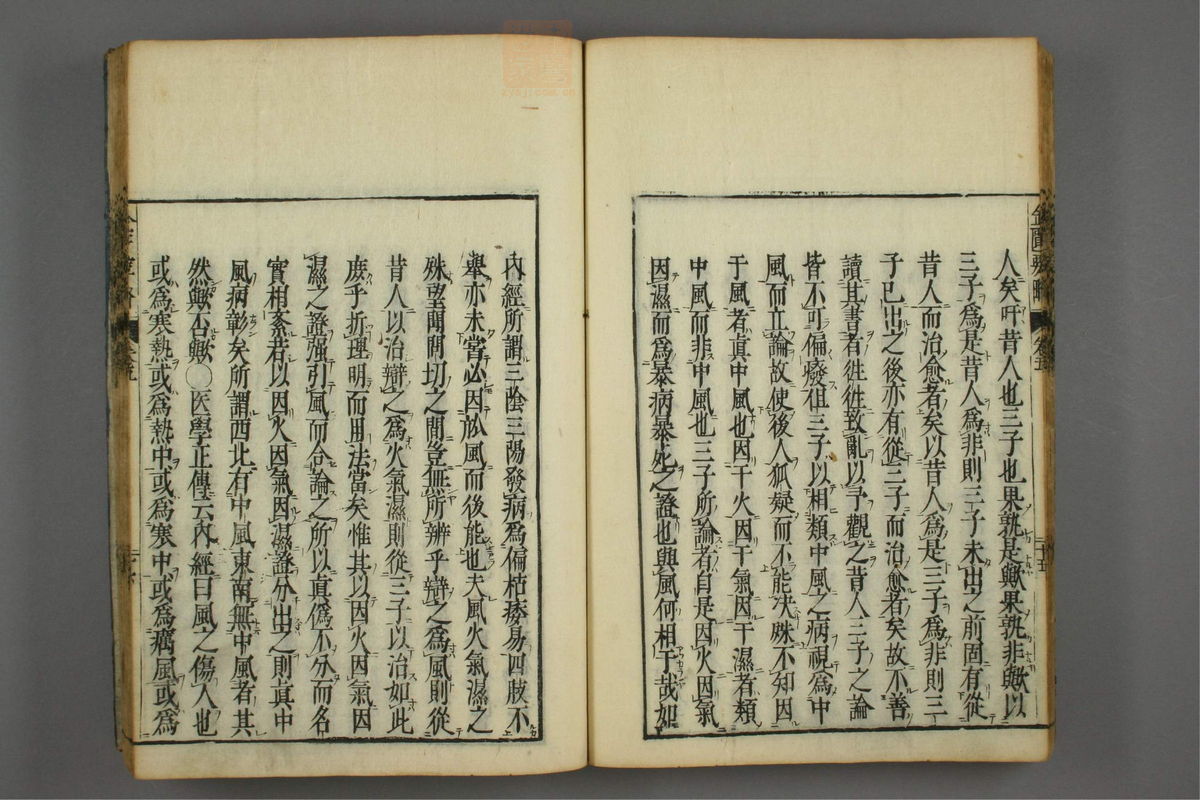 人矣吁昔人也三子也果孰是歟果孰非歟以
三子爲是昔人爲非則三子未出之前固有從
昔人而治愈者矣以昔人爲是三子爲非則三
子已出之後亦有從三子而治愈者矣故不善
讀其書者徃徃致亂以予觀之昔人三子之論
皆不可偏癈徂三子以相類中風之病視爲中
風而立論故使後人狐疑而不能决殊不知因
于風者真中風也因于火因于氣因于濕者類
中風而非中風也三子所論者自是因火因氣
因濕而爲暴病暴死之證也與風何相干哉如
內經所謂三陰三陽發病爲偏枯痿易四肢不
舉亦未嘗必因於風而後能也夫風火氣濕之
殊望聞問切之間豈無所辨乎辯之爲風則從
昔人以治辯之爲火氣濕則從三子以治如此
庶乎折理明而用法當矣惟其以因火因氣因
濕之證强引風而合論之所以真僞不分而名
實相紊若以因火因氣因濕證分出之則真中
風病彰矣所謂西北有中風東南無中風者其
然歟否歟○医學正傳云內經曰風之傷人也
或爲寒熱或爲熱中或爲寒中或爲癘風或爲